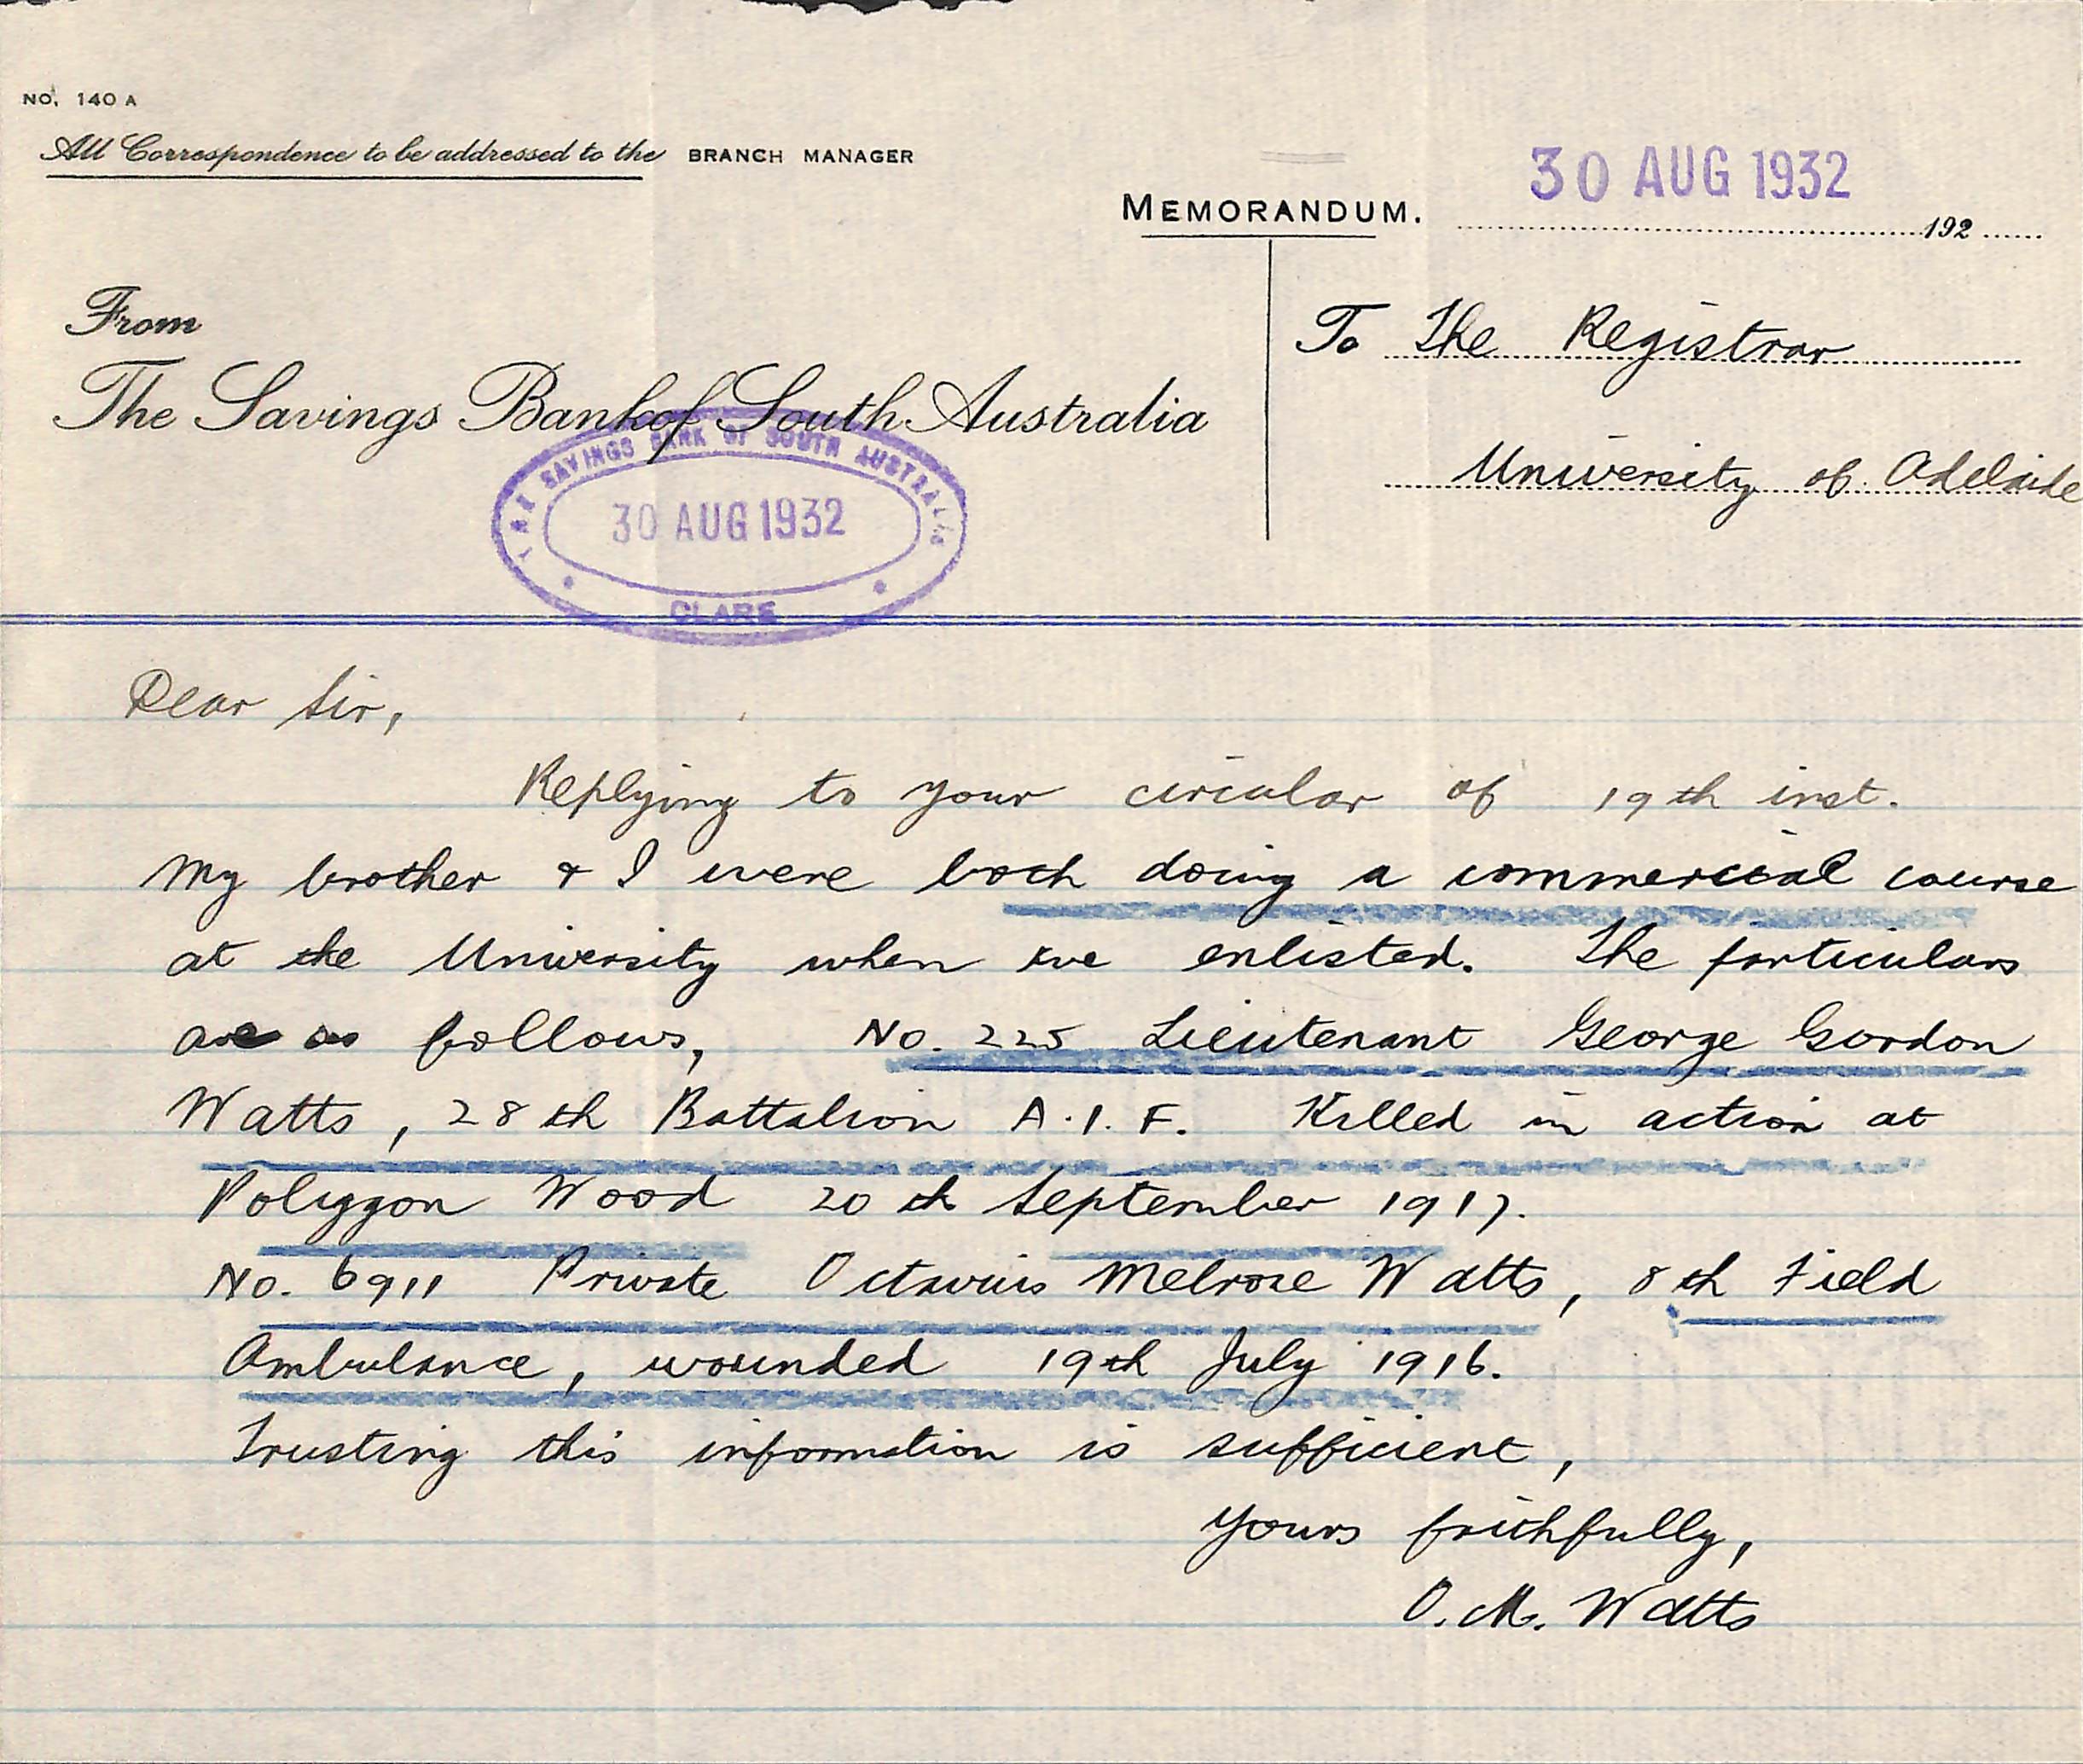 NO. 140 A
All Correspondence to be addressed to the BRANCH MANAGER
MEMORANDUM.
30 AUG 1932
192
From
The Savings Bank of South Australia
To The Registrar
University of Adelaide
THE SAVINGS BANK OF SOUTH AUSTRALIA
30 AUG 1932
CLARE
Dear Sir,
Replying to your circular of 19th inst.
My brother & I were both doing a commercial course
at the University when we enlisted. The particulars
are as follows, No. 225 Lieutenant George Gordon
Watts, 28th Battalion A.I.F. Killed in action at
Polygon Wood 20th September 1917.
No. 6911 Private Octavius Melrose Watts, 8th Field
Ambulance, wounded 19th July 1916.
Trusting this information is sufficient,
Yours faithfully,
O. M. Watts